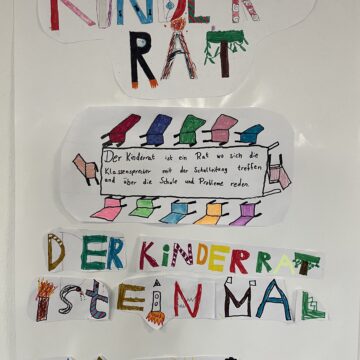 KINDER
RAT
Der Kinderrat ist ein Rat wo sich die
Klassensprecher mit der Schulleitung treffen
und über die Schule und Probleme reden.
DER KINDERRAT
IST EIN MAL